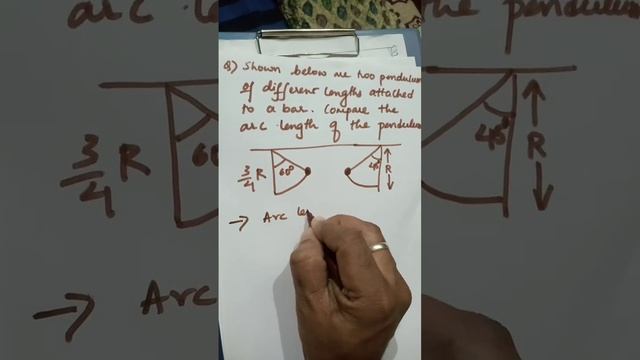 Q) Shown below are two pendulum
of different lengths attached
to a bar. Compare the
arc length of the pendulum
3/4 R 60° 45° R
→ Arc le